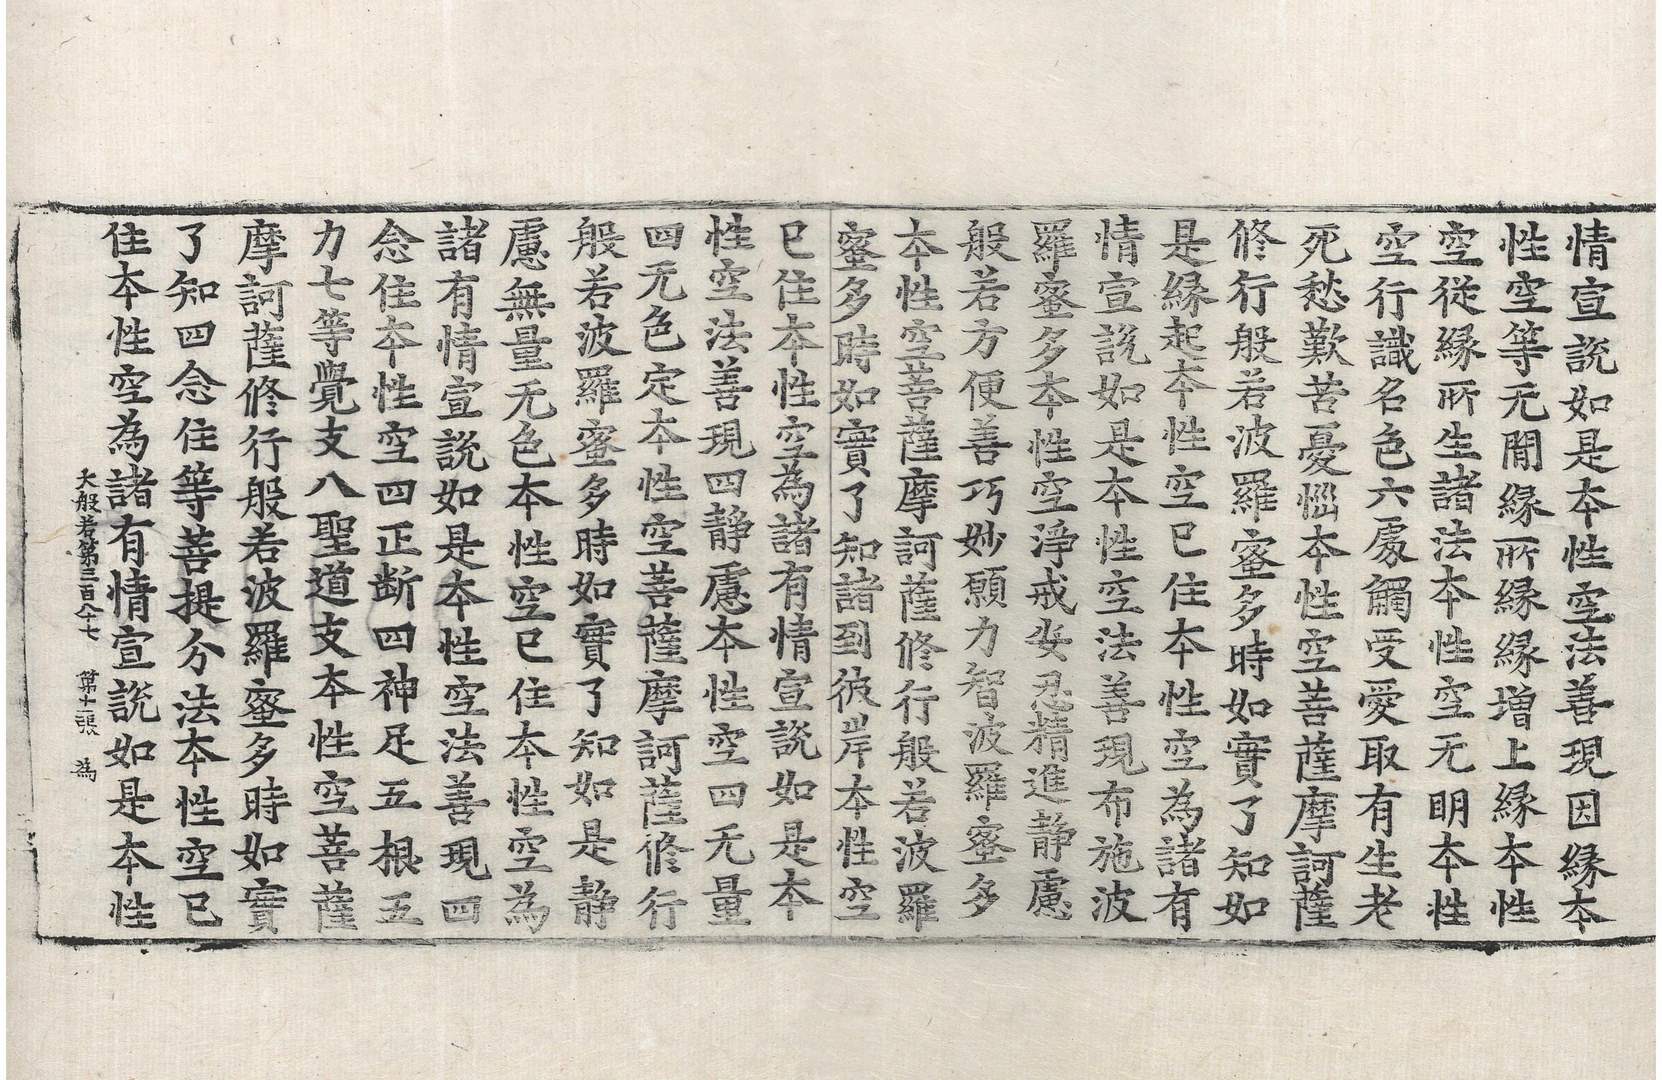 情宣說如是本性空法善現因緣本
性空等无閒緣所緣緣增上緣本性
空從緣所生諸法本性空无明本性
空行識名色六處觸受愛取有生老
死愁歎苦憂惱本性空菩薩摩訶薩
修行般若波羅蜜多時如實了知如
是緣起本性空已住本性空為諸有
情宣說如是本性空法善現布施波
羅蜜多本性空淨戒安忍精進靜慮
般若方便善巧妙願力智波羅蜜多
本性空菩薩摩訶薩修行般若波羅
蜜多時如實了知諸到彼岸本性空
已住本性空為諸有情宣說如是本
性空法善現四靜慮本性空四无量
四无色定本性空菩薩摩訶薩修行
般若波羅蜜多時如實了知如是靜
慮無量无色本性空已住本性空為
諸有情宣說如是本性空法善現四
念住本性空四正斷四神足五根五
力七等覺支八聖道支本性空菩薩
摩訶薩修行般若波羅蜜多時如實
了知四念住等菩提分法本性空已
住本性空為諸有情宣說如是本性
大般若第三百八十七 第十張 為